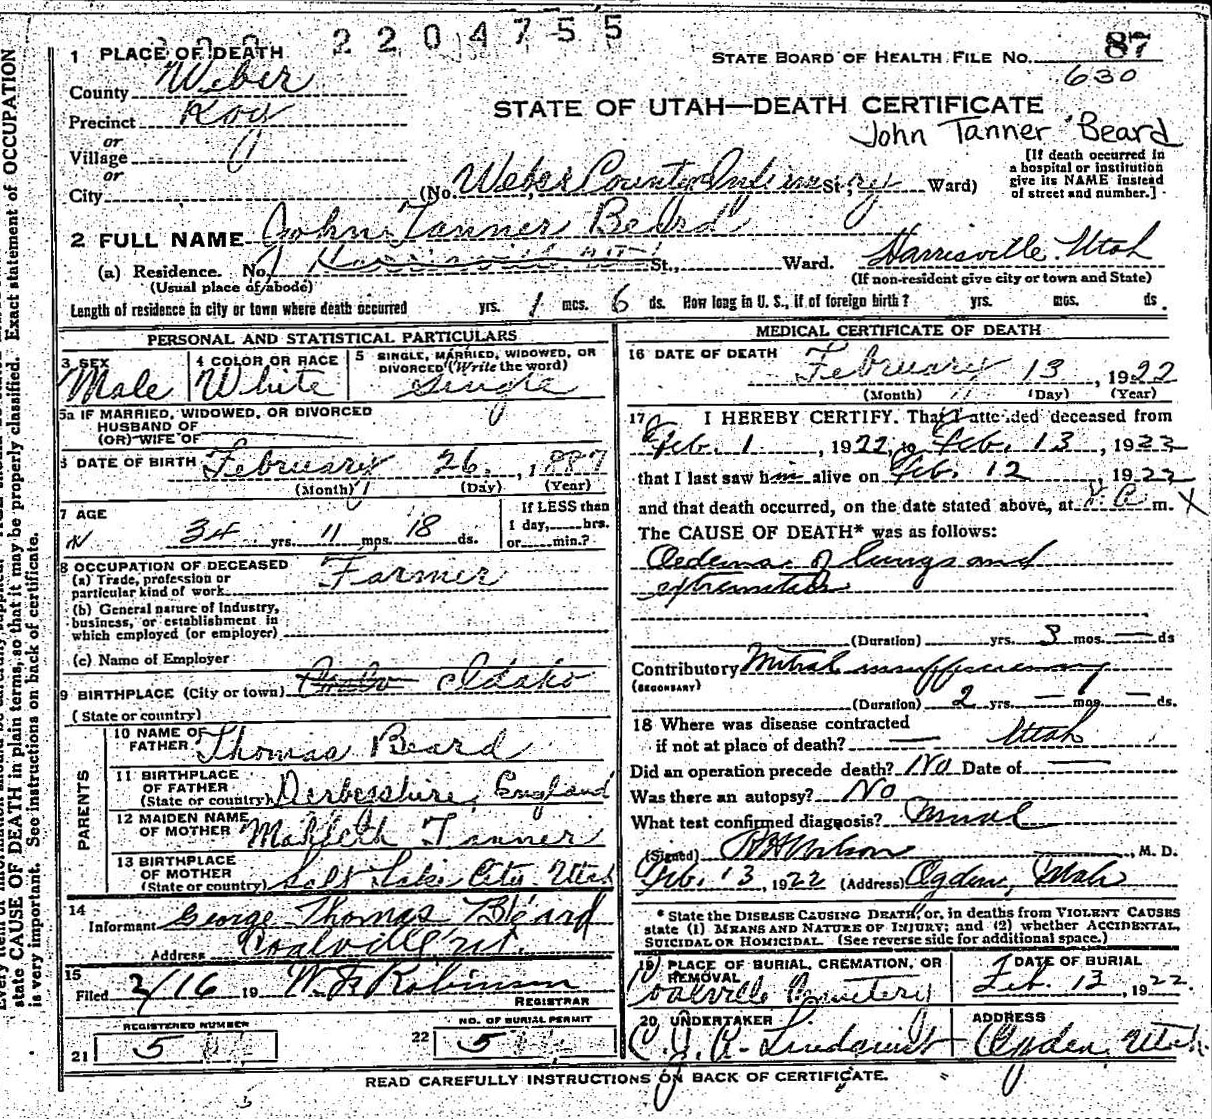 2204755
1 PLACE OF DEATH
STATE BOARD OF HEALTH FILE NO. 87
630
County Weber
STATE OF UTAH—DEATH CERTIFICATE
Precinct Roy
John Tanner Beard
or
Village
or
City (No. Weber County Infirmary St.; Ward)
[If death occurred in
a hospital or institution
give its NAME instead
of street and number.]
2 FULL NAME John Tanner Beard
(a) Residence. No. Harrisville St., Ward. Harrisville Utah
(Usual place of abode) (If non-resident give city or town and State)
Length of residence in city or town where death occurred yrs. 1 mos. 6 ds. How long in U. S., if of foreign birth? yrs. mos. ds.
PERSONAL AND STATISTICAL PARTICULARS
3 SEX Male
4 COLOR OR RACE White
5 SINGLE, MARRIED, WIDOWED, OR
DIVORCED (Write the word)
Single
5a IF MARRIED, WIDOWED, OR DIVORCED
HUSBAND OF
(OR) WIFE OF
6 DATE OF BIRTH February 26, 1887
(Month) (Day) (Year)
7 AGE
34 yrs. 11 mos. 18 ds.
If LESS than
1 day, hrs.
or min.?
8 OCCUPATION OF DECEASED
(a) Trade, profession or
particular kind of work Farmer
(b) General nature of Industry,
business, or establishment in
which employed (or employer)
(c) Name of Employer
9 BIRTHPLACE (City or town) Idaho
(State or country)
PARENTS
10 NAME OF
FATHER Thomas Beard
11 BIRTHPLACE
OF FATHER
(State or country) Derbesshire, England
12 MAIDEN NAME
OF MOTHER Tanner
13 BIRTHPLACE
OF MOTHER
(State or country) Salt Lake City Utah
14
Informant George Thomas Beard
Address Coalville Ut.
15
Filed 2/16 19 W. F. Robinson
REGISTRAR
REGISTERED NUMBER
21 5
NO. OF BURIAL PERMIT
22 5
MEDICAL CERTIFICATE OF DEATH
16 DATE OF DEATH February 13, 1922
(Month) (Day) (Year)
17 I HEREBY CERTIFY. That I attended deceased from
Feb. 1, 1922, to Feb. 13, 1922
that I last saw him alive on Feb. 12 1922
and that death occurred, on the date stated above, at m. X
The CAUSE OF DEATH* was as follows:
Oedema of lungs and
extremities
(Duration) yrs. 3 mos. — ds
Contributory Mitral insufficiency
(SECONDARY)
(Duration) 2 yrs. — mos. — ds.
18 Where was disease contracted
if not at place of death? — Utah
Did an operation precede death? No Date of —
Was there an autopsy? No
What test confirmed diagnosis?
(Signed) Wilson, M. D.
Feb. 13, 1922 (Address) Ogden, Utah
* State the DISEASE CAUSING DEATH, or, in deaths from VIOLENT CAUSES
state (1) MEANS AND NATURE OF INJURY; and (2) whether ACCIDENTAL,
SUICIDAL OR HOMICIDAL. (See reverse side for additional space.)
19 PLACE OF BURIAL, CREMATION, OR
REMOVAL
Coalville Cemetery
DATE OF BURIAL
Feb. 13, 1922.
20 UNDERTAKER
C. J. A. Lindquist
ADDRESS
Ogden, Utah.
READ CAREFULLY INSTRUCTIONS ON BACK OF CERTIFICATE.
state CAUSE OF DEATH in plain terms, so that it may be properly classified. Exact statement of OCCUPATION
is very important. See instructions on back of certificate.